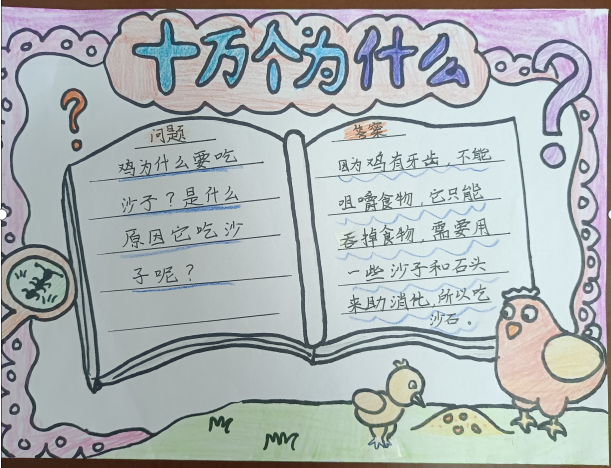 十万个为什么
问题
鸡为什么要吃
沙子？是什么
原因它吃沙
子呢？
答案
因为鸡有牙齿，不能
咀嚼食物，它只能
吞掉食物，需要用
一些沙子和石头
来助消化，所以吃
沙石。